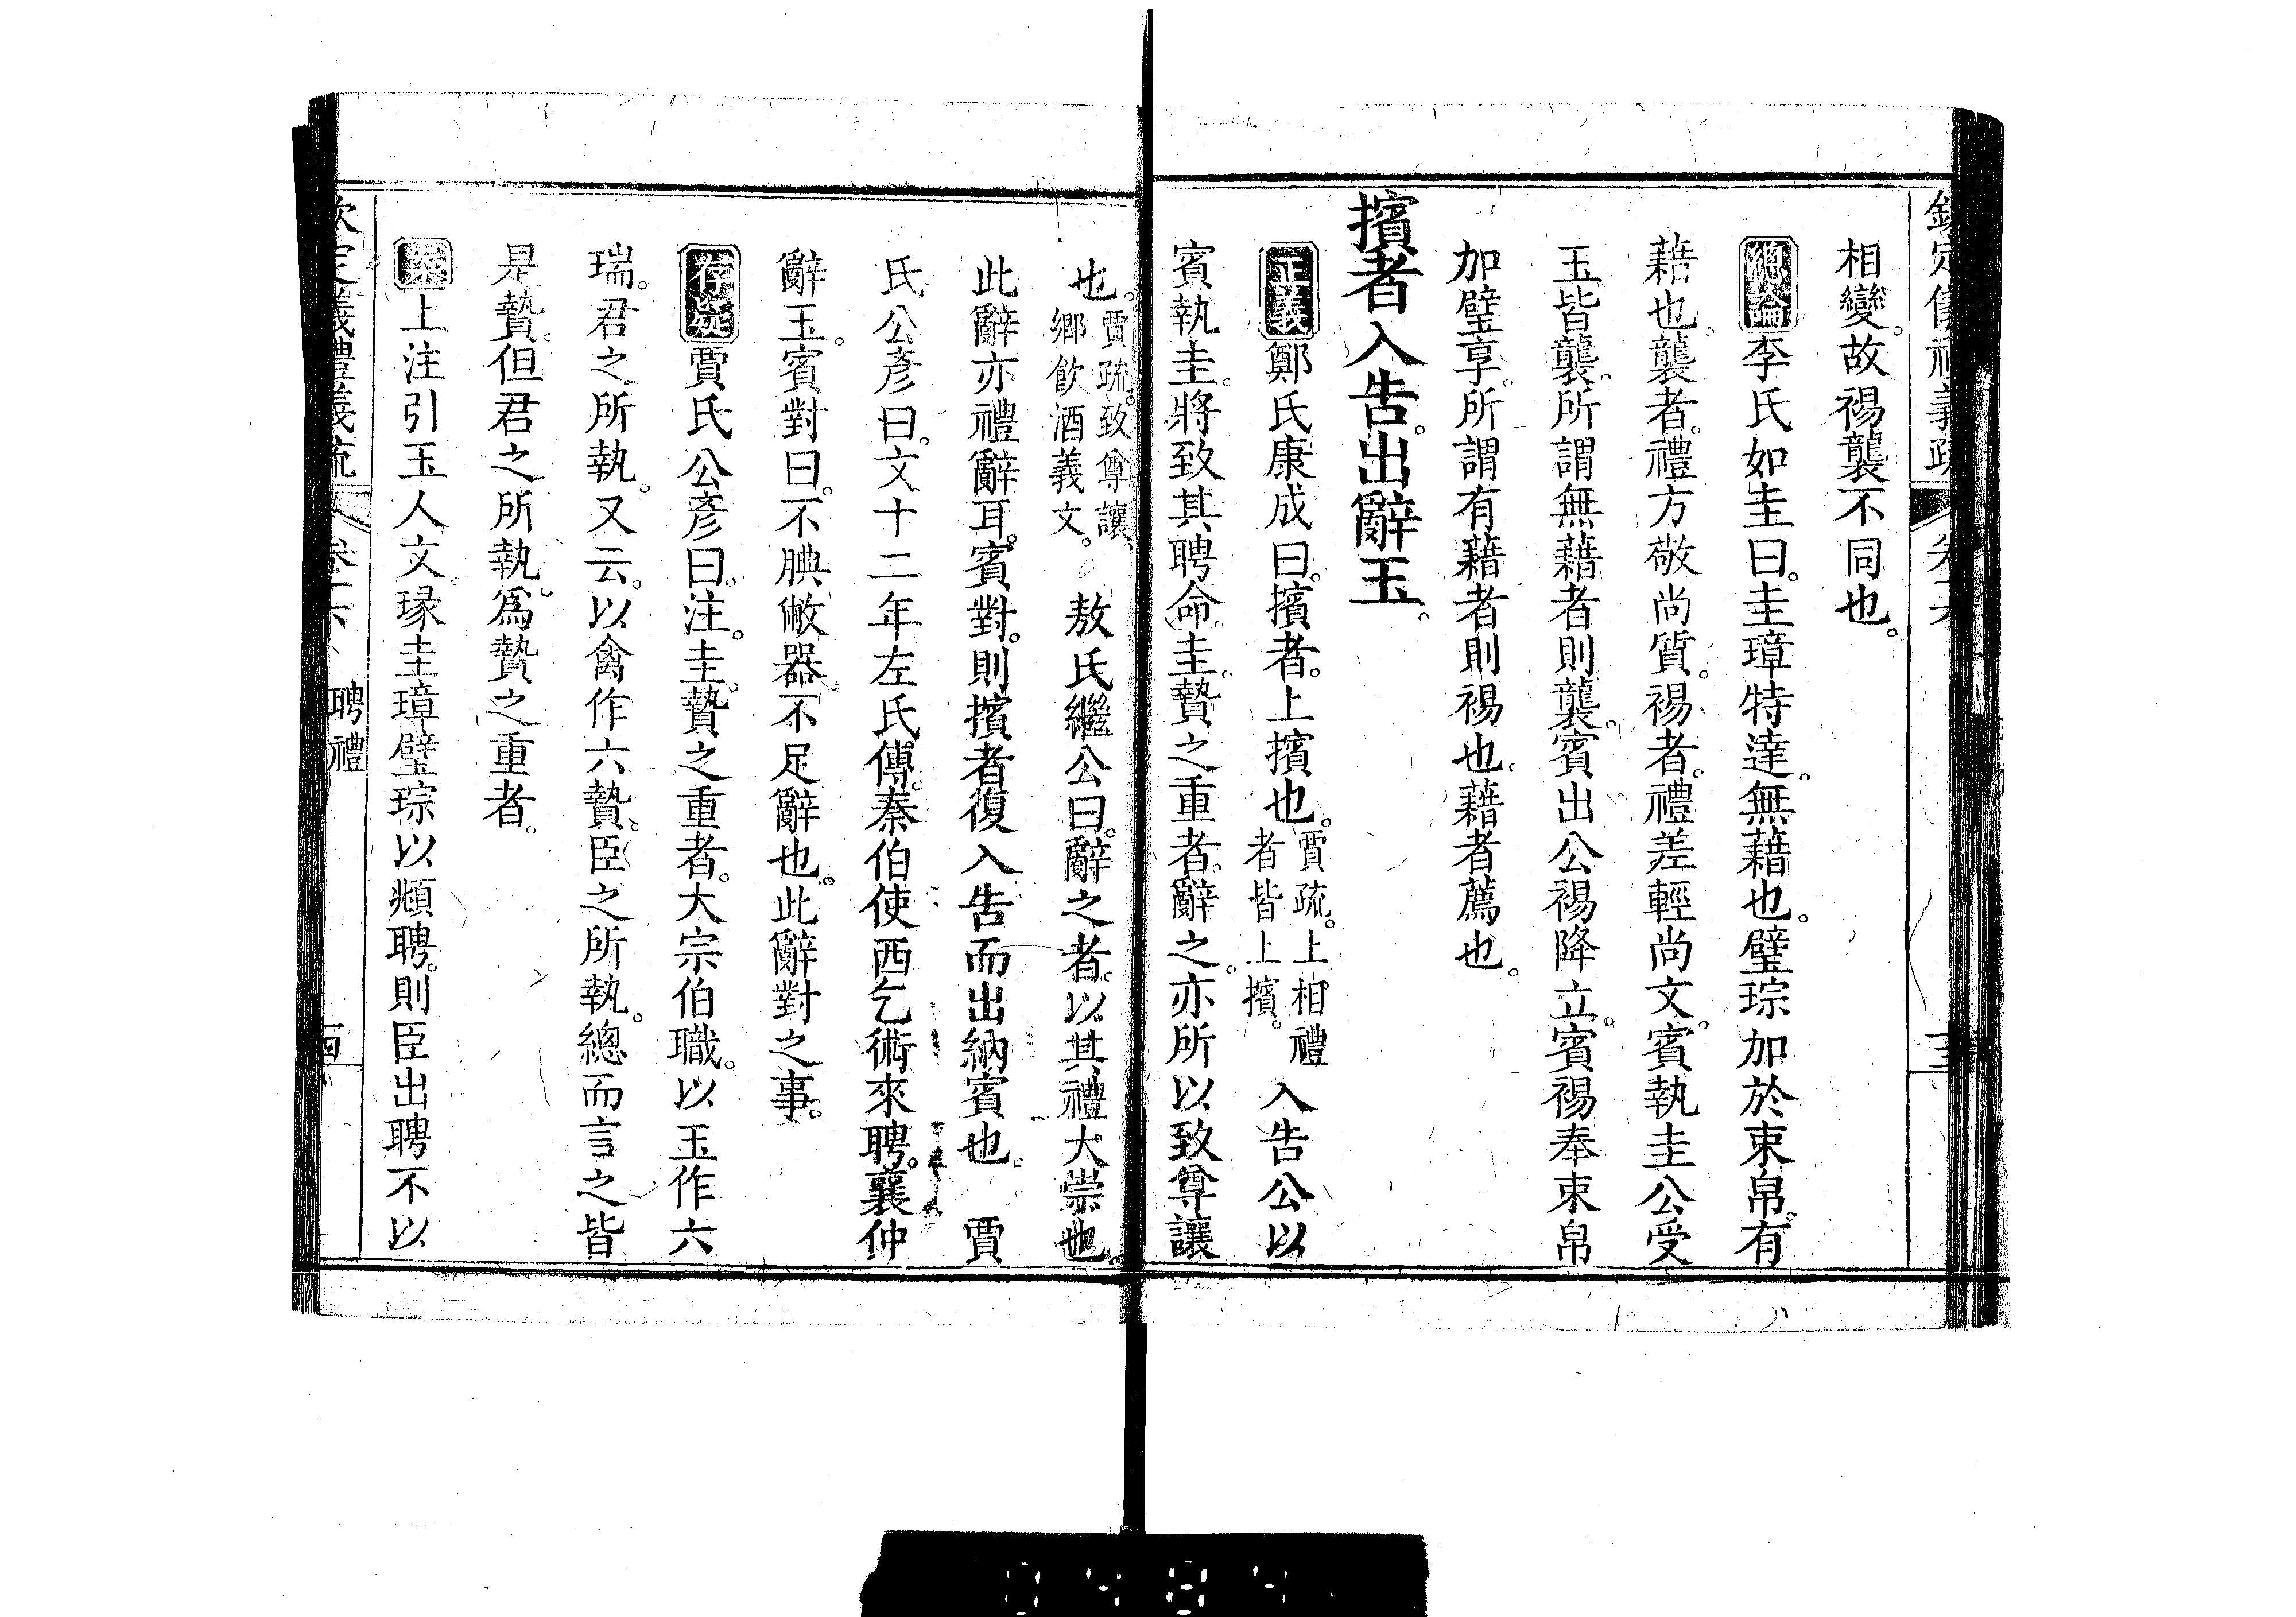 相變。故裼襲不同也。
總論李氏如圭曰。圭璋特達。無藉也。璧琮加於束帛。有
藉也。襲者。禮方敬尚質。裼者。禮差輕尚文。賓執圭公受
玉皆襲。所謂無藉者則襲。賓出公裼降立。賓裼奉束帛
加璧享。所謂有藉者則裼也。藉者薦也。
擯者入告。出辭玉。
正義鄭氏康成曰。擯者。上擯也。賈疏。上相禮者皆上擯。入告公以
賓執圭。將致其聘命。圭。贄之重者。辭之。亦所以致尊讓
也。賈疏。致尊讓。鄉飲酒義文。敖氏繼公曰。辭之者。以其禮大崇也。
此辭亦禮辭耳。賓對。則擯者復入告而出納賓也。賈
氏公彥曰。文十二年左氏傳。秦伯使西乞術來聘。襄仲
辭玉。賓對曰。不腆敝器。不足辭也。此辭對之事。
存疑賈氏公彥曰。注。圭。贄之重者。大宗伯職。以玉作六
瑞。君之所執。又云。以禽作六贄。臣之所執。總而言之皆
是贄。但君之所執。為贄之重者。
案上注引玉人文。瑑圭璋璧琮以頫聘。則臣出聘不以
欽定儀禮義疏 卷十六 聘禮